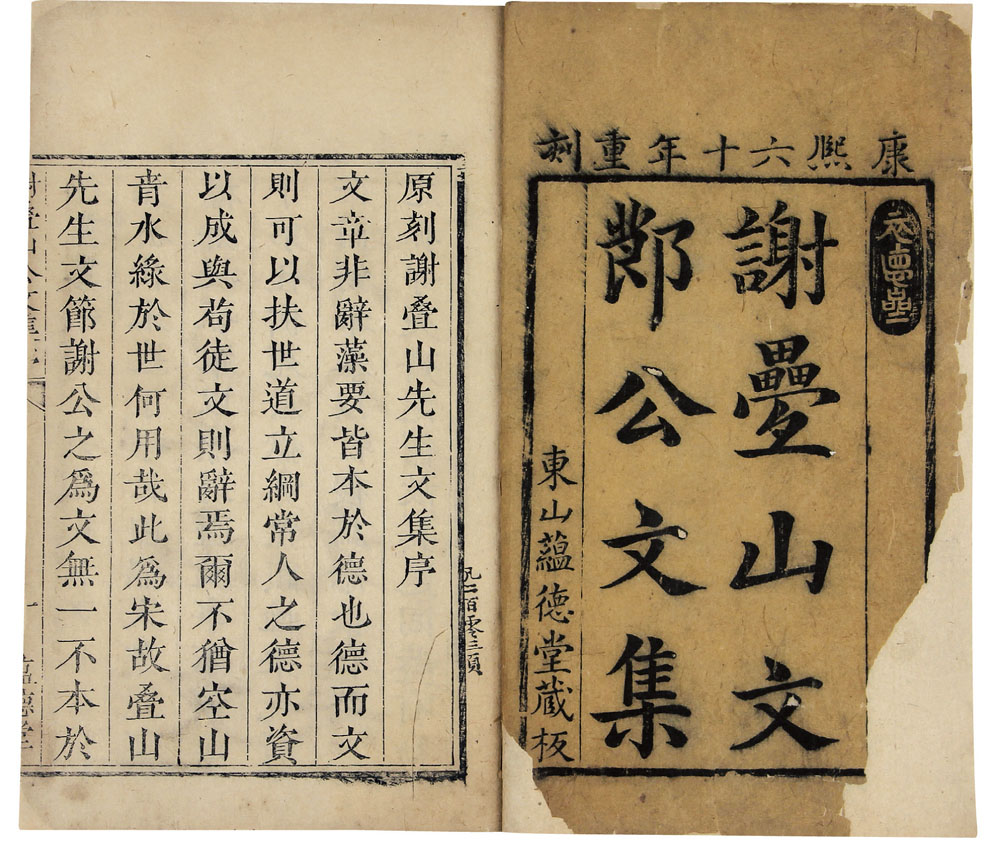 康熙六十年重刻
謝疊山文
節公文集
東山蘊德堂藏板
凡二百零三頁
原刻謝叠山先生文集序
文章非辭藻要皆本於德也德而文
則可以扶世道立綱常人之德亦資
以成與苟徒文則辭焉爾不猶空山
青水緣於世何用哉此爲宋故叠山
先生文節謝公之爲文無一不本於
謝叠山公文集序
一
蘊德堂